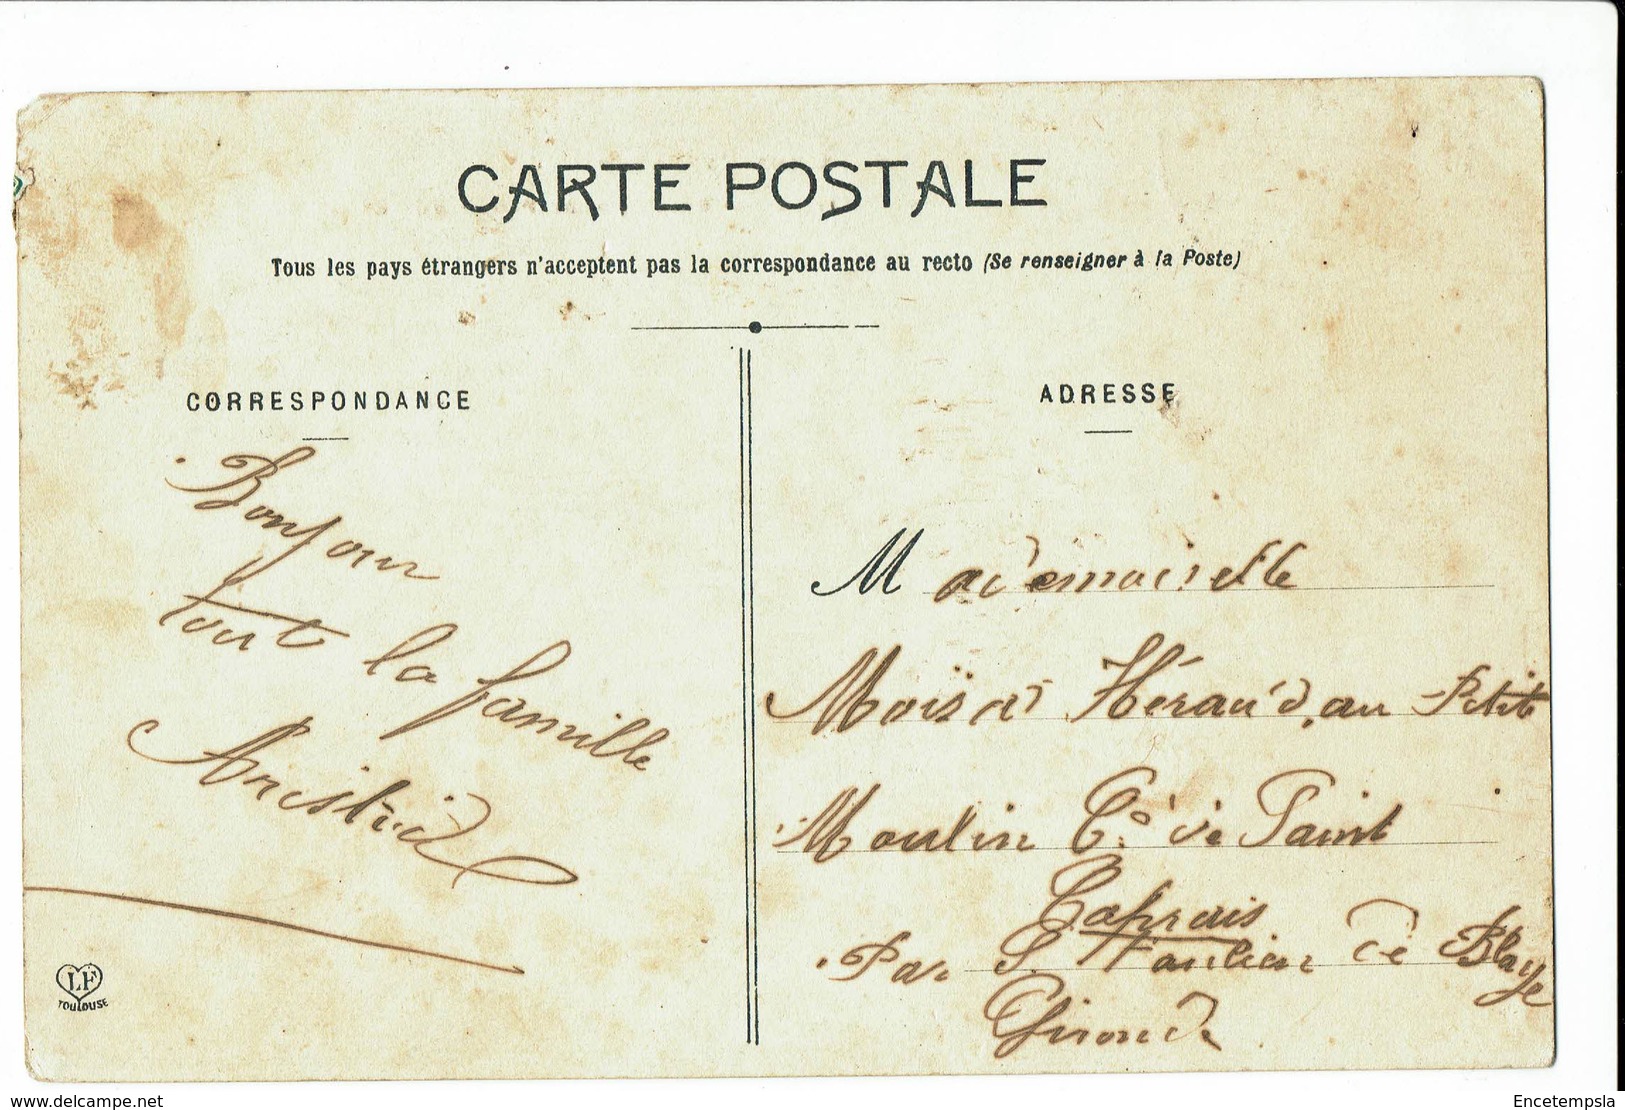 CARTE POSTALE
Tous les pays étrangers n'acceptent pas la correspondance au recto (Se renseigner à la Poste)
CORRESPONDANCE
Bonjour
tout la famille
Aristid
LF
TOULOUSE
ADRESSE
Mademoiselle
Héraud, au Petit
Moulin Cº de Saint
Caprais
Par S de Blaye
Gironde
www.delcampe.net
Encetempsla